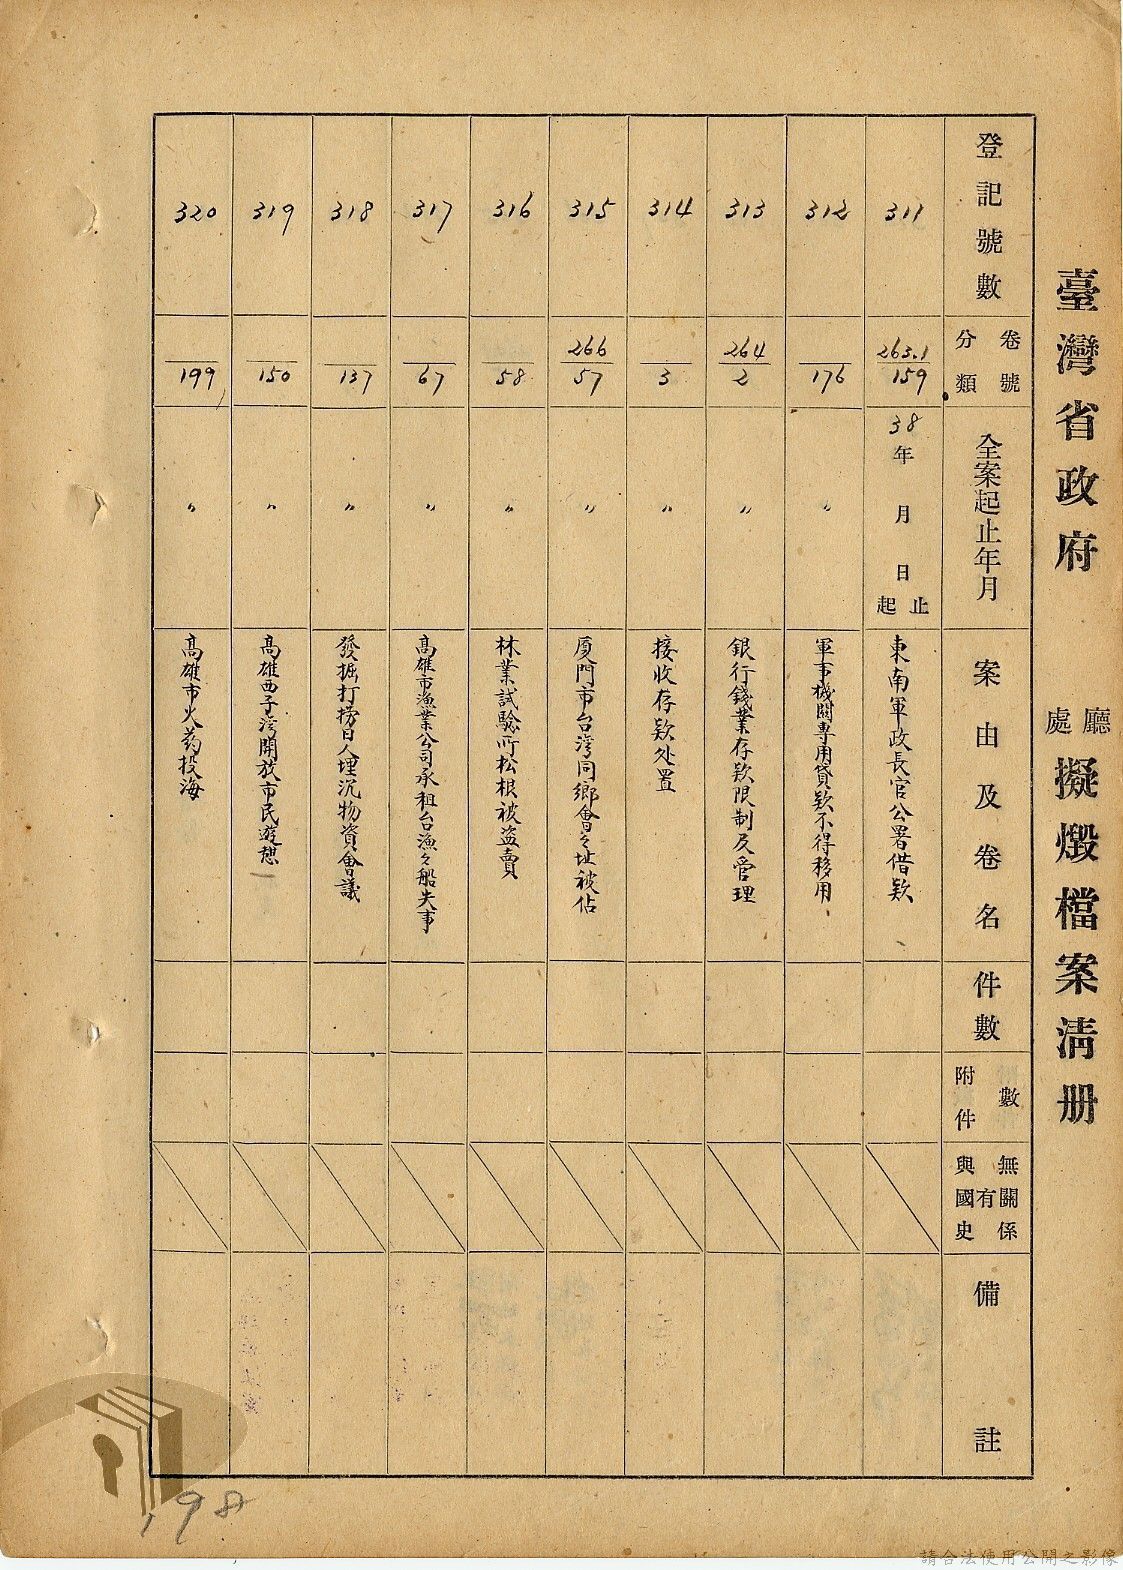 臺灣省政府 處廳 擬燬檔案清册
登記號數
卷號
分類
全案起止年月
案由及卷名
件數
附件數
與國史有無關係
備註
311
263.1
159
38年 月 日起止
東南軍政長官公署借款
312
176
〃
軍事機關專用貸款不得移用
313
264
2
〃
銀行錢業存款限制及管理
314
3
〃
接收存款处置
315
266
57
〃
厦門市台湾同鄉會之址被佔
316
58
〃
林業試驗所松根被盗賣
317
67
〃
高雄市漁業公司承租台漁々船失事
318
137
〃
發掘打撈日人埋沉物資會議
319
150
〃
高雄西子湾開放市民遊憩
320
199
〃
高雄市火药投海
198
請合法使用公開之影像